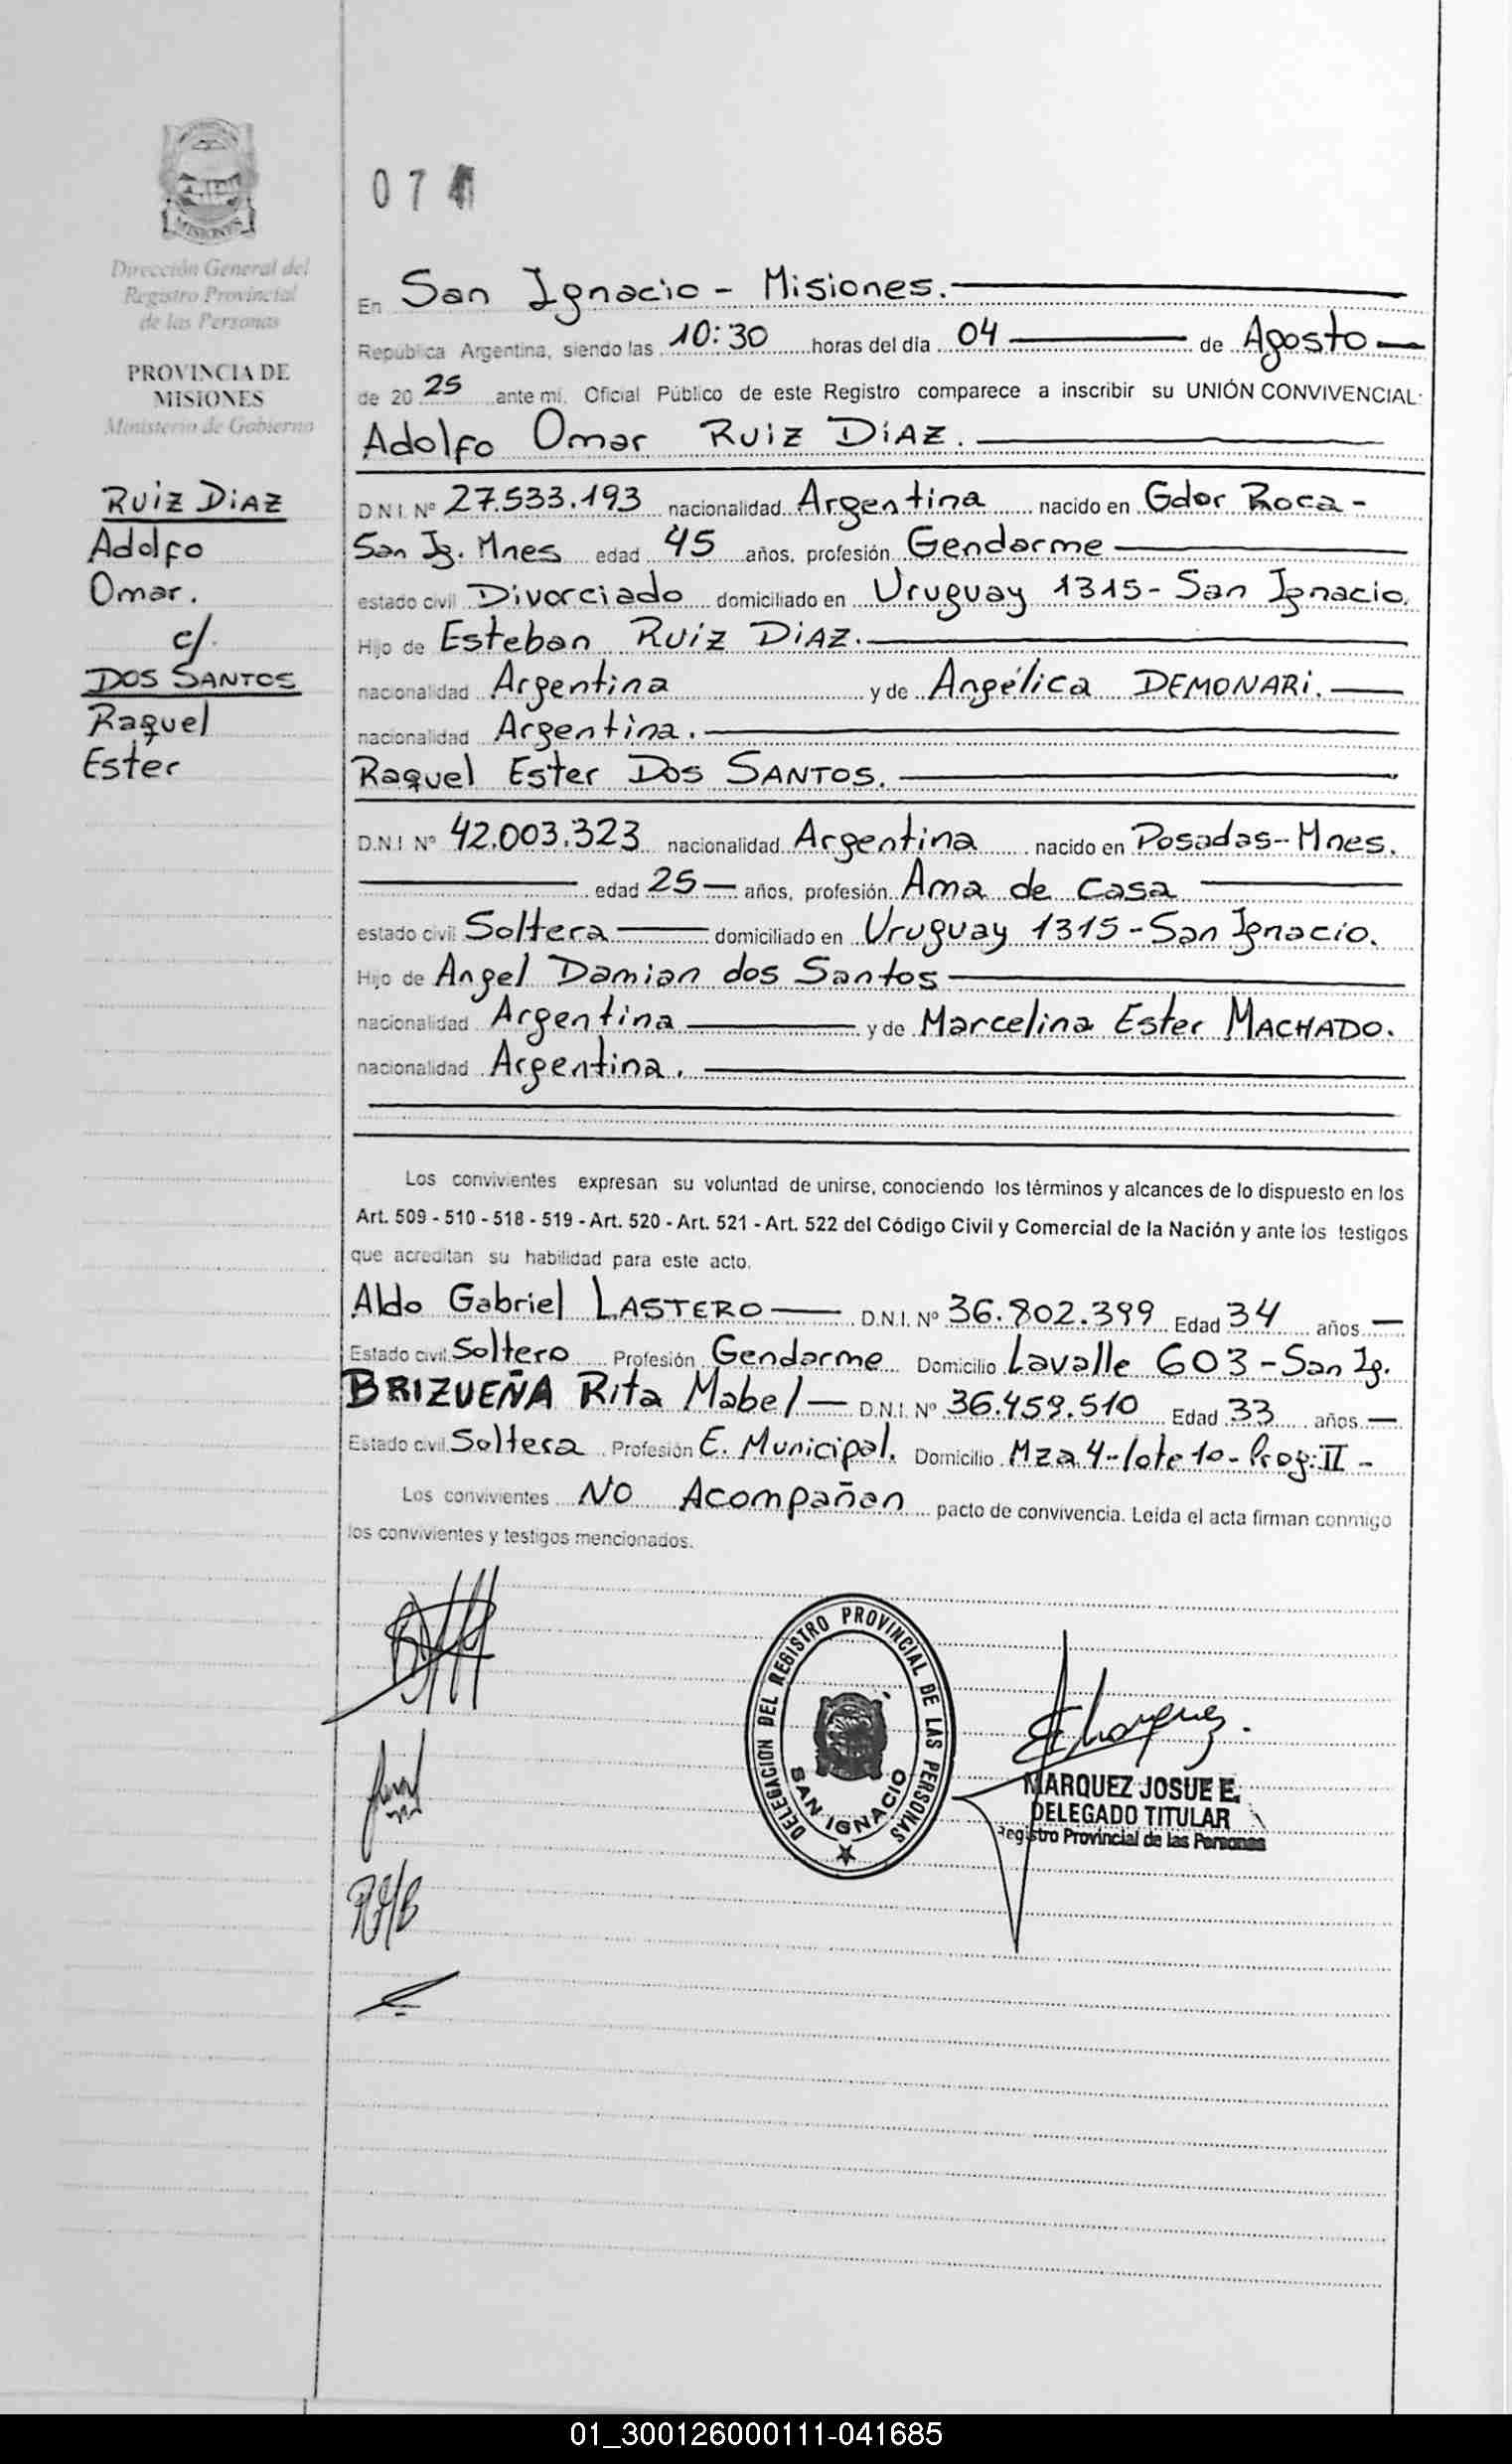 MISIONES
Dirección General del
Registro Provincial
de las Personas
PROVINCIA DE
MISIONES
Ministerio de Gobierno
RUIZ DIAZ
Adolfo
Omar.
c/.
DOS SANTOS
Raquel
Ester
07
En San Ignacio - Misiones.
República Argentina, siendo las 10:30 horas del día 04 de Agosto
de 2025 ante mí, Oficial Público de este Registro comparece a inscribir su UNIÓN CONVIVENCIAL:
Adolfo Omar RUIZ DIAZ.
D.N.I. Nº 27.533.193 nacionalidad Argentina nacido en Gdor Roca -
San Ig. Mnes edad 45 años, profesión Gendarme
estado civil Divorciado domiciliado en Uruguay 1315- San Ignacio.
Hijo de Esteban RUIZ DIAZ.
nacionalidad Argentina y de Angélica DEMONARI.
nacionalidad Argentina.
Raquel Ester DOS SANTOS.
D.N.I. Nº 42.003.323 nacionalidad Argentina nacido en Posadas-Mnes.
edad 25 años, profesión Ama de casa
estado civil Soltera domiciliado en Uruguay 1315 - San Ignacio.
Hijo de Angel Damian dos Santos
nacionalidad Argentina y de Marcelina Ester MACHADO.
nacionalidad Argentina.
Los convivientes expresan su voluntad de unirse, conociendo los términos y alcances de lo dispuesto en los
Art. 509 - 510 - 518 - 519 - Art. 520 - Art. 521 - Art. 522 del Código Civil y Comercial de la Nación y ante los testigos
que acreditan su habilidad para este acto.
Aldo Gabriel LASTERO D.N.I. Nº 36.802.399 Edad 34 años
Estado civil Soltero Profesión Gendarme Domicilio Lavalle 603 - San Ig.
BRIZUEÑA Rita Mabel D.N.I. Nº 36.459.510 Edad 33 años
Estado civil Soltera Profesión E. Municipal. Domicilio Mza 4-lote 10- Prog: II -
Los convivientes NO Acompañan pacto de convivencia. Leída el acta firman conmigo
los convivientes y testigos mencionados.
DELEGACION DEL REGISTRO PROVINCIAL DE LAS PERSONAS
SAN IGNACIO
MARQUEZ JOSUE E.
DELEGADO TITULAR
Registro Provincial de las Personas
01_300126000111-041685